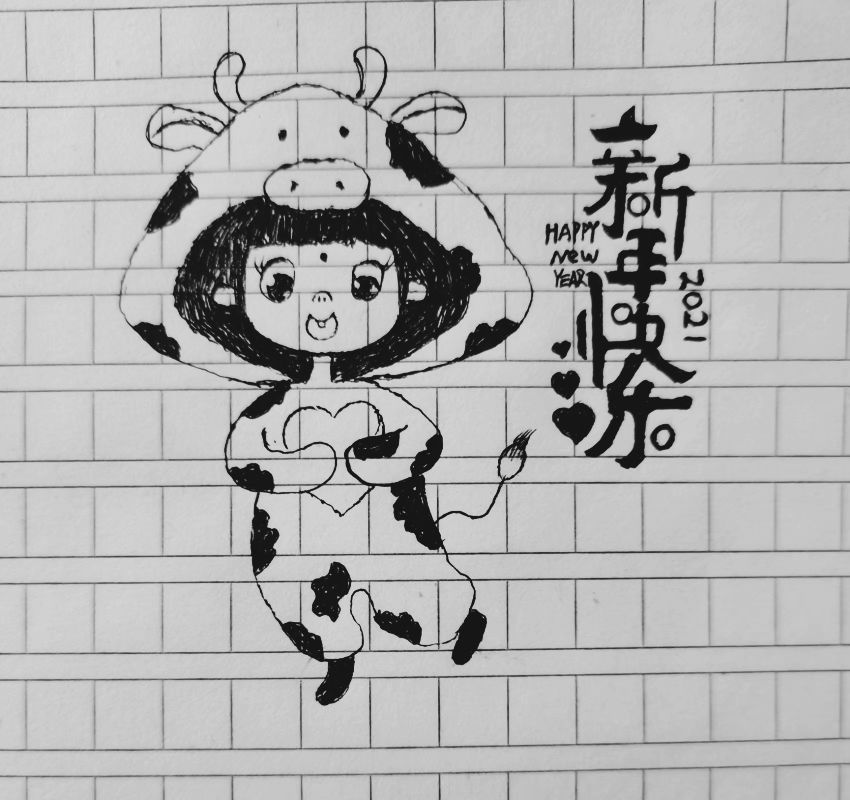 新年快乐
HAPPY
New
YEAR
2021